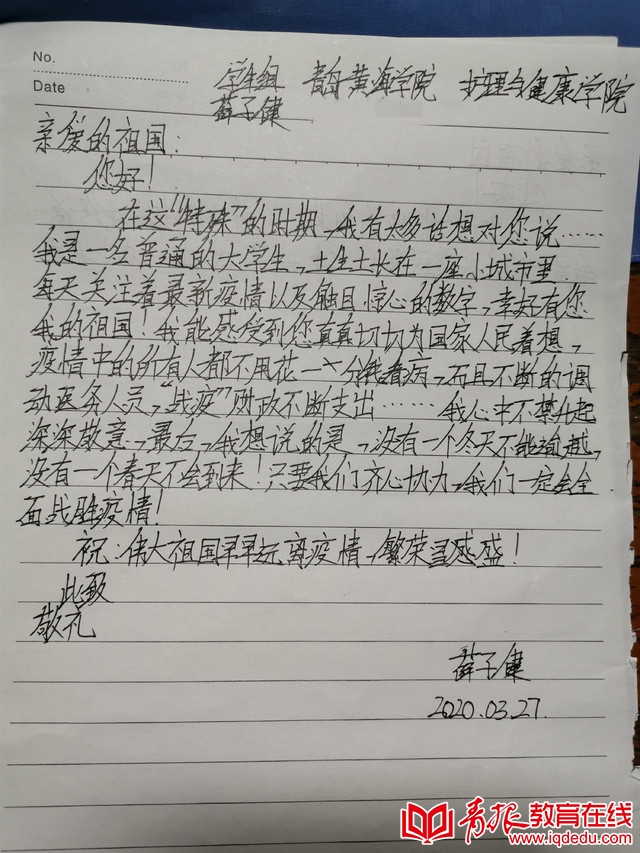 No.
Date
学生组 青岛黄海学院 护理与健康学院
薛子健
亲爱的祖国：
您好！
在这“特殊”的时期，我有太多话想对您说……
我是一名普通的大学生，土生土长在一座小城市里，
每天关注着最新疫情以及触目惊心的数字，幸好有您
我的祖国！我能感受到您真真切切为国家人民着想，
疫情中的所有人都不用花一分钱看病，而且不断的调
动医务人员，“战疫”财政不断支出……我心中不禁升起
深深敬意，最后，我想说的是，没有一个冬天不能逾越，
没有一个春天不会到来！只要我们齐心协力，我们一定会全
面战胜疫情！
祝：伟大祖国早早远离疫情，繁荣昌盛！
此致
敬礼
薛子健
2020.03.27.
青报教育在线
www.iqdedu.com